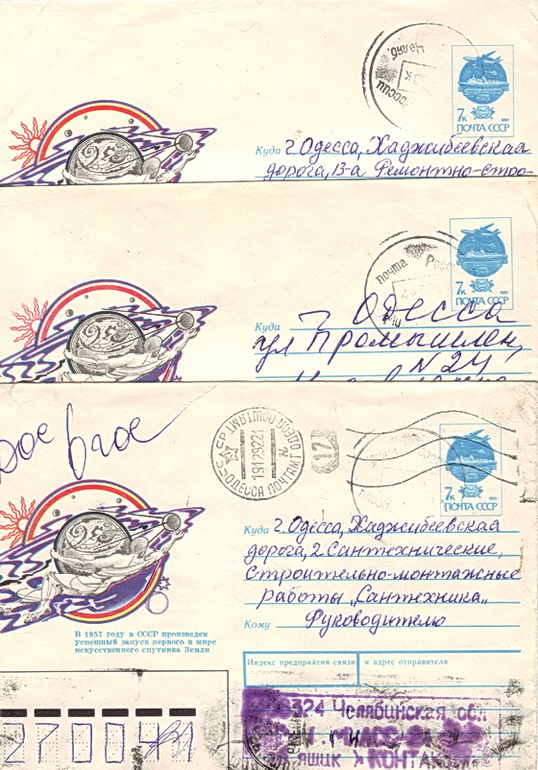 Челяб.
России
7к
ПОЧТА СССР
Куда г. Одесса, Хаджибеевская
дорога, 13-а Ремонтно-стро-
почта Росс
7к
ПОЧТА СССР
Куда г. Одесса
ул Промышлен,
N 24,
7к
ПОЧТА СССР
ОДЕССА ПОЧТАМТ
19129221
12
Куда г. Одесса, Хаджибеевская
дорога, 2. Сантехнические,
строительно-монтажные
работы „Сантехника„
Кому Руководителю
В 1957 году в СССР произведен
успешный запуск первого в мире
искусственного спутника Земли
Индекс предприятия связи и адрес отправителя
324 Челябинская обл
МИАСС
ящик КОНТАК
270041